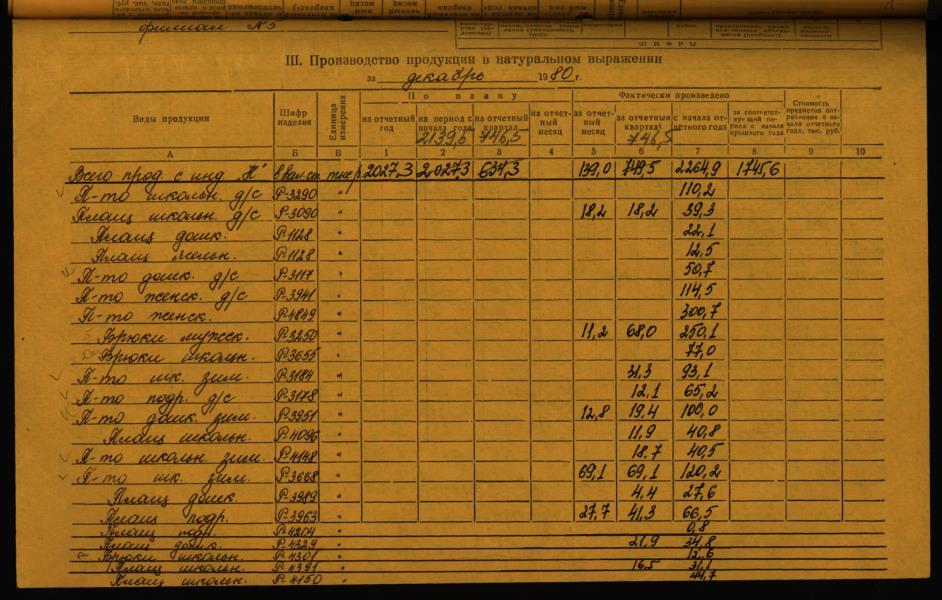 филиал №5
ШИФРЫ
III. Производство продукции в натуральном выражении
за декабрь 1980 г.
Виды продукции | Шифр изделия | Единица измерения | По плану | Фактически произведено | Стоимость предметов потребления с начала отчетного года, тыс. руб.
на отчетный год | на период с начала года | на отчетный квартал | на отчетный месяц | за отчетный месяц | за отчетный квартал | с начала отчетного года | за соответствующий период с начала прошлого года
2139,5 746,5 746,5
А Б В 1 2 3 4 5 6 7 8 9 10
Всего прод с инд "Н" в вал. ст. т.нер 2027,3 2027,3 634,3 139,0 749,5 2264,9 1745,6
П-то школьн. д/с Р-3290 " 110,2
Плащ школьн. д/с Р-3090 " 18,2 18,2 39,3
Плащ дошк. Р-1128 " 22,1
Плащ Р-1128 " 12,5
П-то дошк. д/с Р-3117 " 50,7
П-то женск. д/с Р-3941 " 114,5
П-то женск. Р-4849 " 300,7
Брюки мужск. Р-3250 " 11,2 68,0 250,1
Брюки школьн. Р-3655 " 77,0
П-то шк. зим. Р-3184 " 31,3 93,1
П-то подр. д/с Р-3178 " 12,1 65,2
П-то дошк. зим. Р-3951 " 12,8 19,4 100,0
Плащ школьн. Р-4096 " 11,9 40,8
П-то школьн. зим. Р-4148 " 18,7 40,5
П-то шк. зим. Р-3668 " 69,1 69,1 120,2
Плащ дошк Р-3989 " 4,4 27,6
Плащ подр. Р-3963 " 27,7 41,3 66,5
Плащ подр. Р-4204 " 0,8
Плащ дошк. Р-4329 " 21,9 34,8
Брюки школьн. Р-4301 " 12,6
Плащ школьн. Р-4391 " 16,5 31,1
Плащ школьн. Р-4150 " 44,7